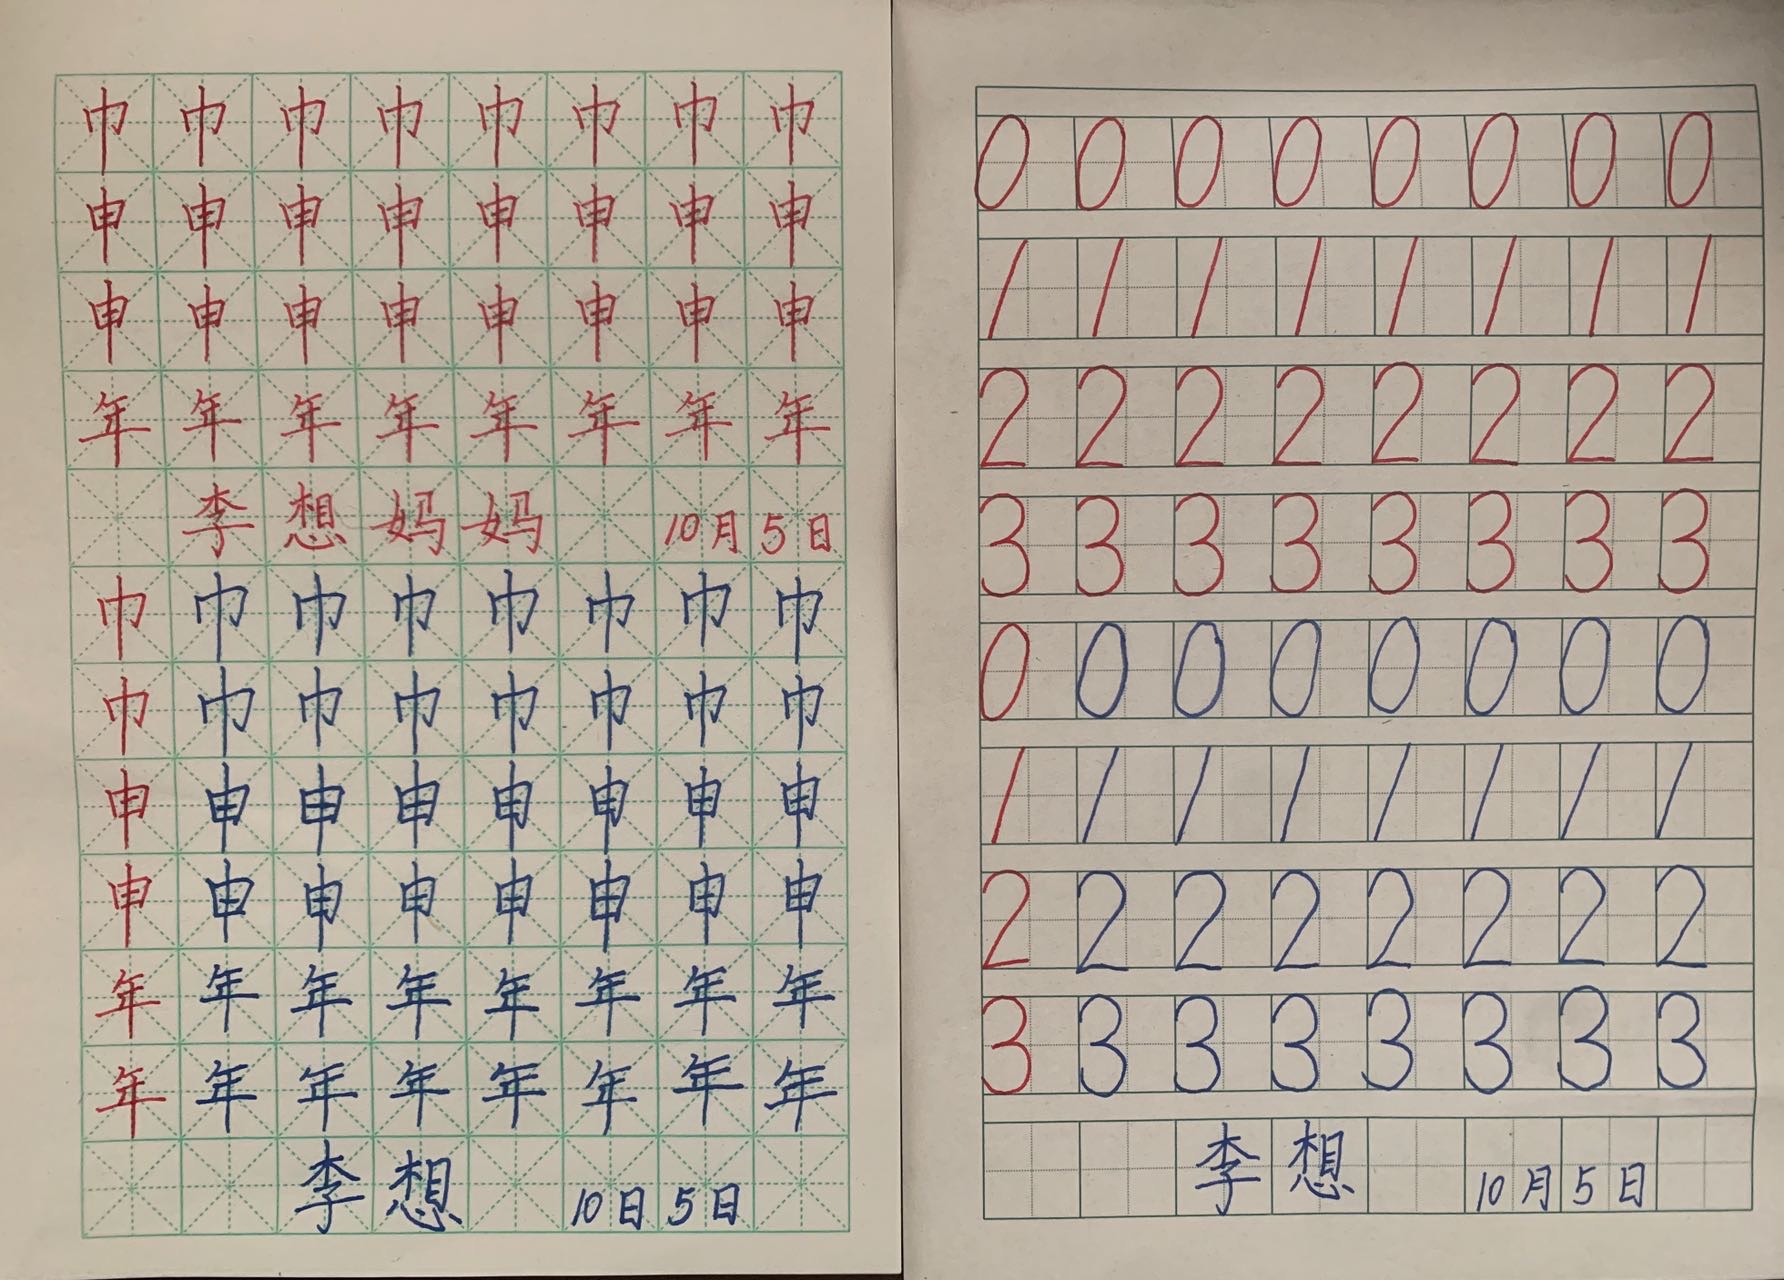 巾巾巾巾巾巾巾巾
申申申申申申申申
申申申申申申申申
年年年年年年年年
李想妈妈 10月5日
巾巾巾巾巾巾巾巾
巾巾巾巾巾巾巾巾
申申申申申申申申
申申申申申申申申
年年年年年年年年
年年年年年年年年
李想 10日5日
0 0 0 0 0 0 0 0
1 1 1 1 1 1 1 1
2 2 2 2 2 2 2 2
3 3 3 3 3 3 3 3
0 0 0 0 0 0 0 0
1 1 1 1 1 1 1 1
2 2 2 2 2 2 2 2
3 3 3 3 3 3 3 3
李想 10月5日